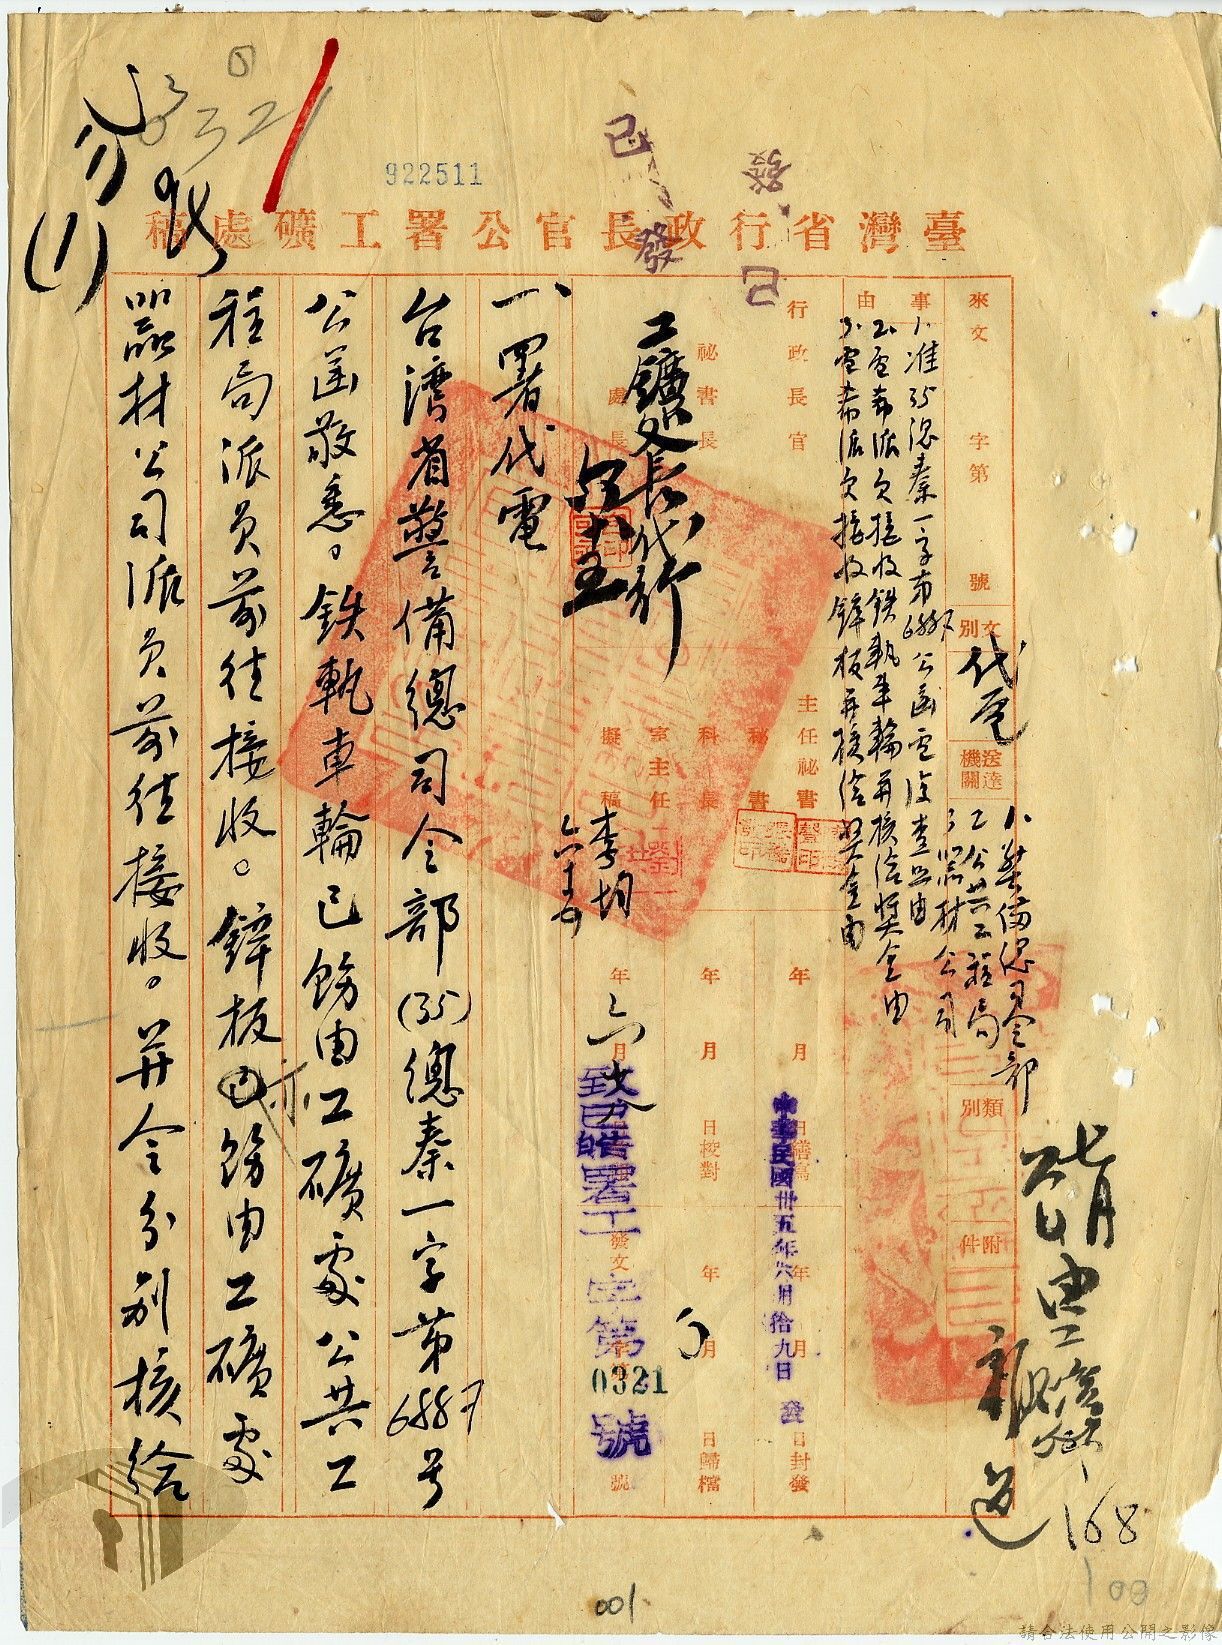 922511
臺灣省行政長官公署工礦處稿
已發
發已
來文 字第 號
文別 代電
送達機關
1.警備總司令部
2.公共工程局
3.器材公司
類別
附件
事由
1.准35總秦一字第6887公函電復查照由
2.電希派員接收鉄軌車輪并核給獎金由
3.電希派員接收鋅板并核給獎金由
行政長官
主任秘書
秘書長
秘書
處長
科長
室主任
擬稿
工鑛處長代行
李均
年 月 日繕寫
年 月 日校對
年 月 日封發
年 月 日歸檔
中華民國卅五年六月拾九日 發
發文 字第 號
致巳皓署工字第0321號
一、署代電
台灣省警備總司令部(35)總秦一字第6887号
公函敬悉。鉄軌車輪已飭由工礦處公共工
程局派員前往接收。鋅板亦飭由工礦處
器材公司派員前往接收。并令分別核給
168
100
001
請合法使用公開之影像